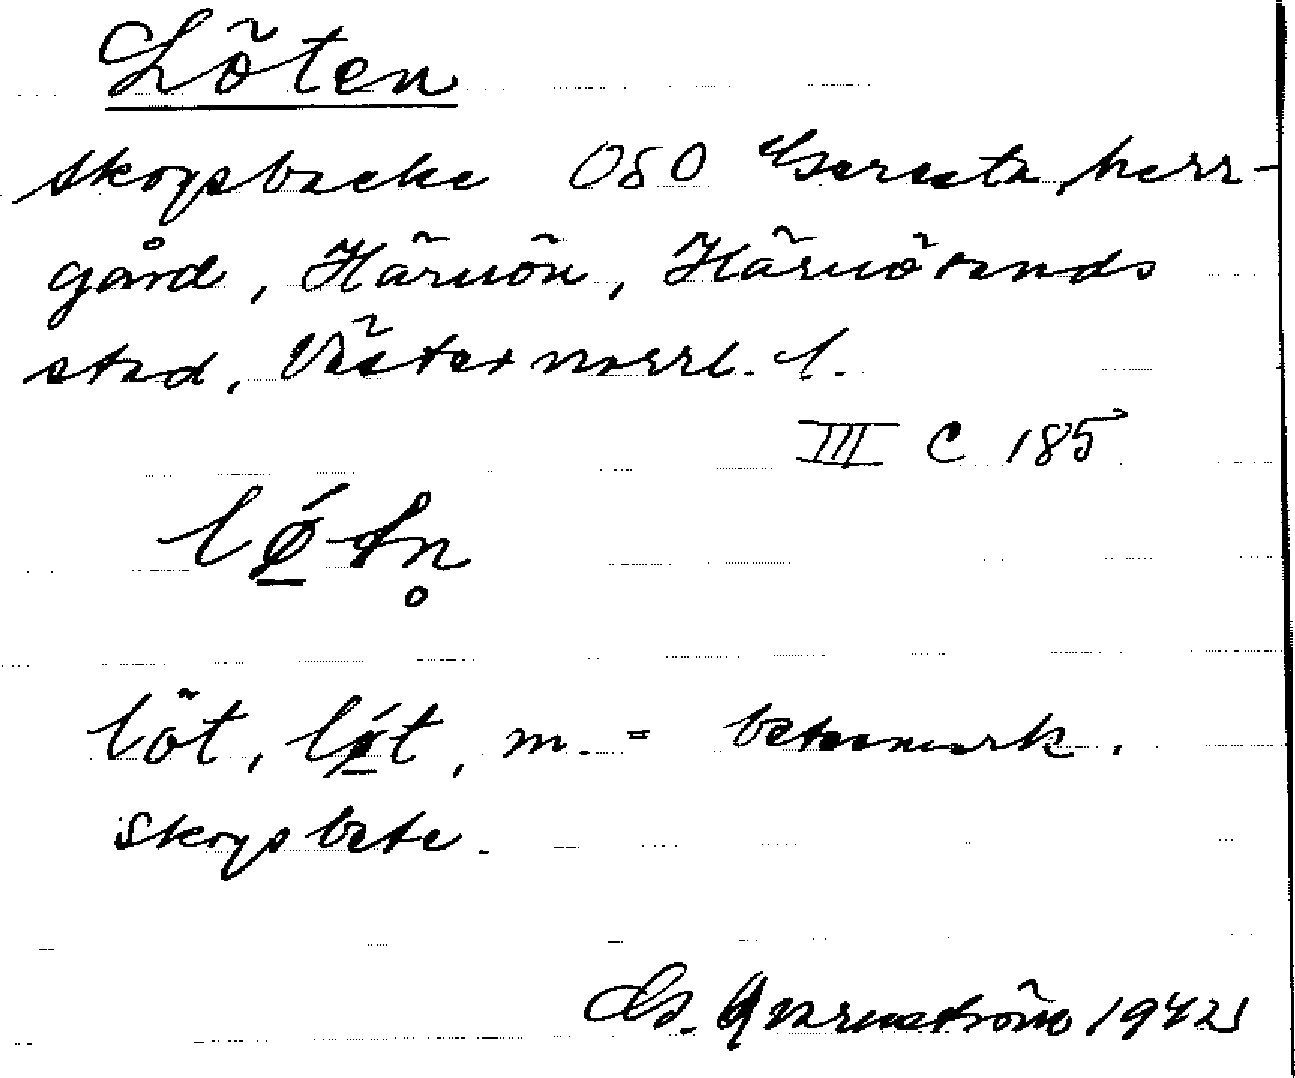 Löten
skogsbacke OSO Geresta herr-
gård, Härnön, Härnösands
stad, Västernorrl. l.
III C 185
lǿ̱tn̥
löt, lǿ̱t, m. = betesmark.
Skogsbete.
G. Qvarnström 1942